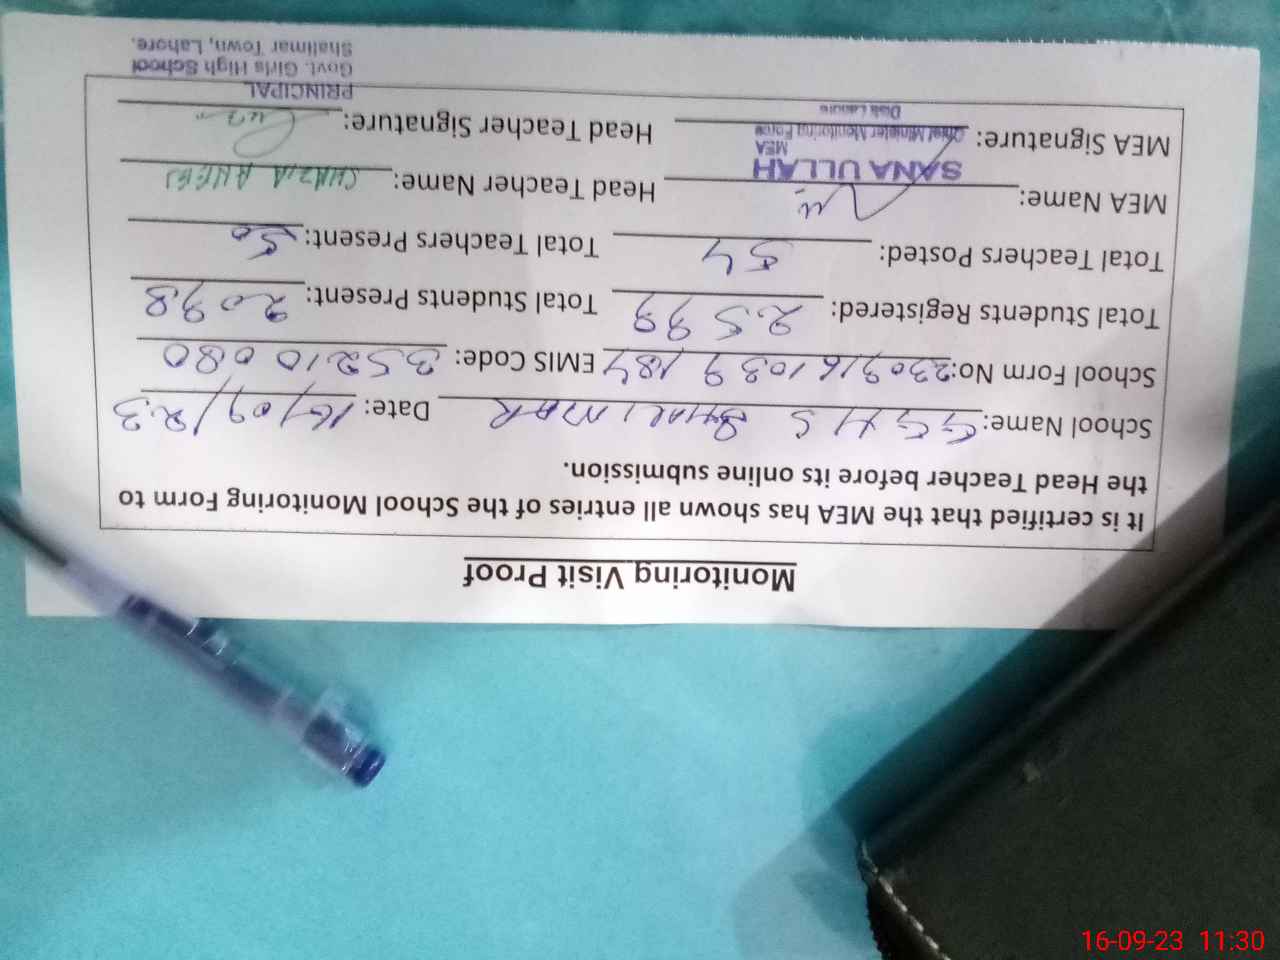 Monitoring Visit Proof
It is certified that the MEA has shown all entries of the School Monitoring Form to
the Head Teacher before its online submission.
School Name: GGHS SHALIMAR Date: 16/09/23
School Form No: 2309161039184 EMIS Code: 35210080
Total Students Registered: 2599 Total Students Present: 2098
Total Teachers Posted: 54 Total Teachers Present: 50
MEA Name: Head Teacher Name: SHAZIA
SANA ULLAH
MEA
Chief Minister Monitoring Force
Distt: Lahore
MEA Signature: Head Teacher Signature:
PRINCIPAL
Govt. Girls High School
Shalimar Town, Lahore.
16-09-23 11:30